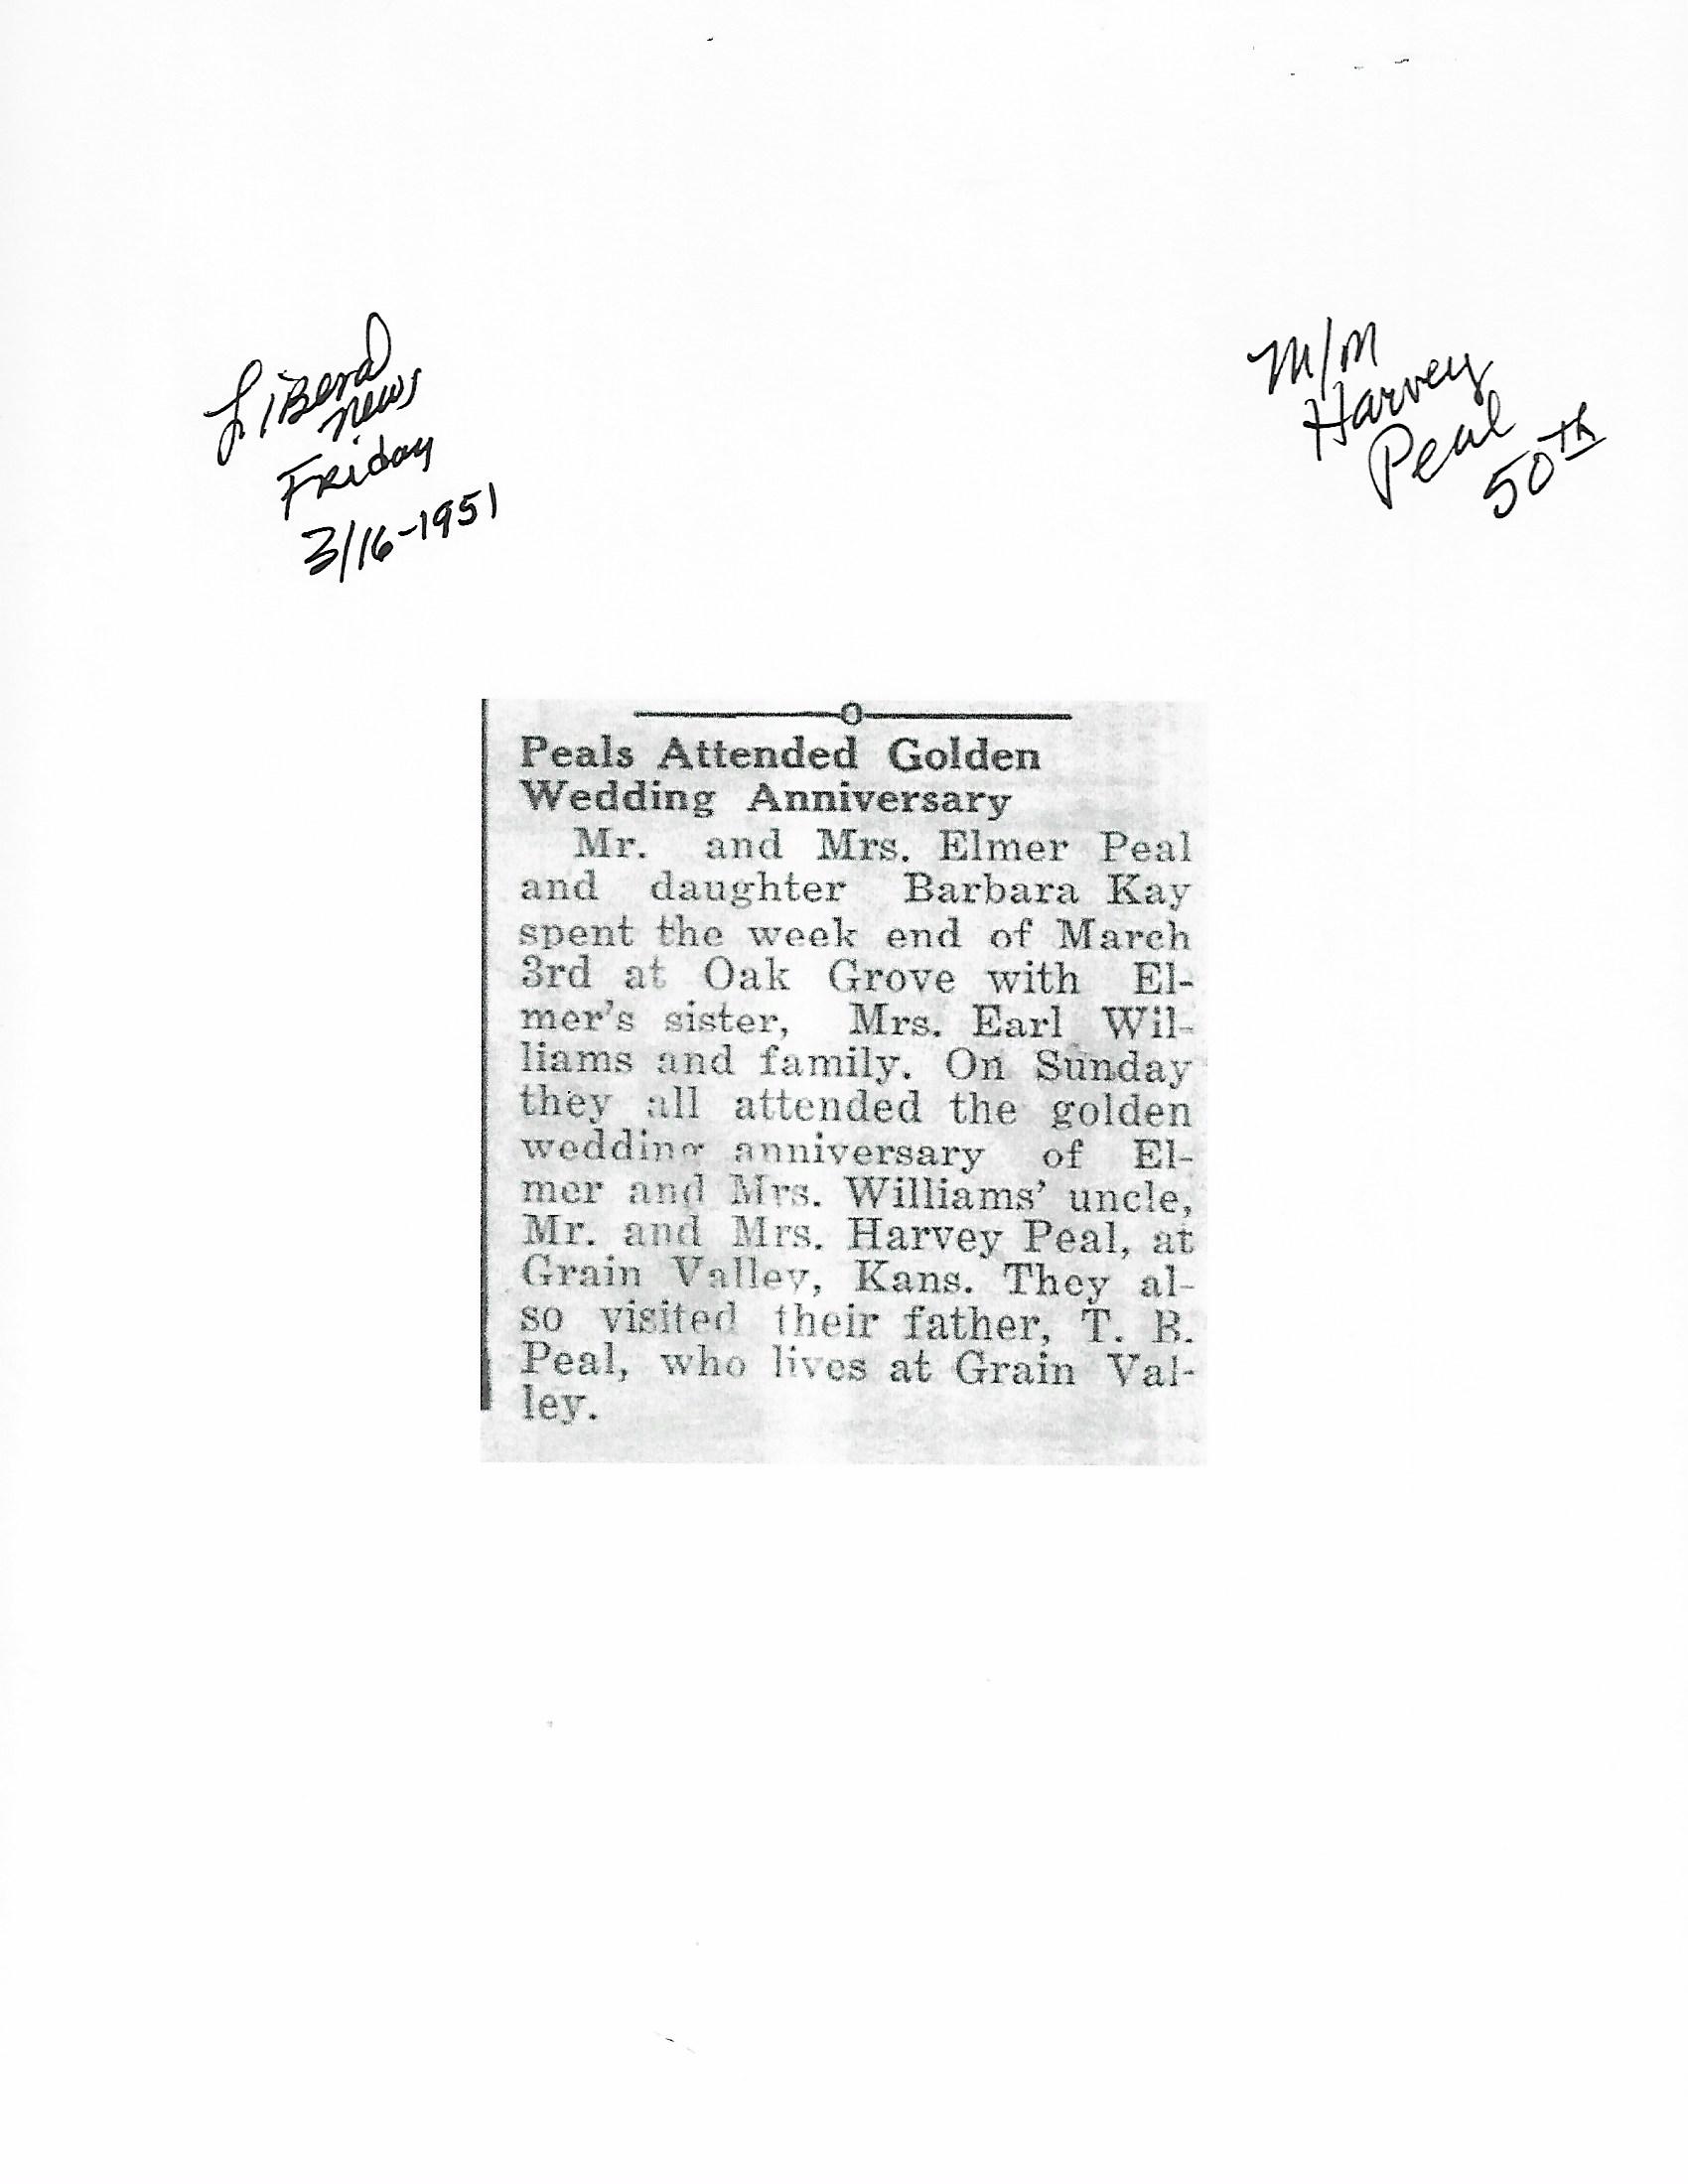 Liberal
News
Friday
3/16-1951
M/M
Harvey
Peal
50th
Peals Attended Golden
Wedding Anniversary
Mr. and Mrs. Elmer Peal
and daughter Barbara Kay
spent the week end of March
3rd at Oak Grove with El-
mer's sister, Mrs. Earl Wil-
liams and family. On Sunday
they all attended the golden
wedding anniversary of El-
mer and Mrs. Williams' uncle,
Mr. and Mrs. Harvey Peal, at
Grain Valley, Kans. They al-
so visited their father, T. B.
Peal, who lives at Grain Val-
ley.